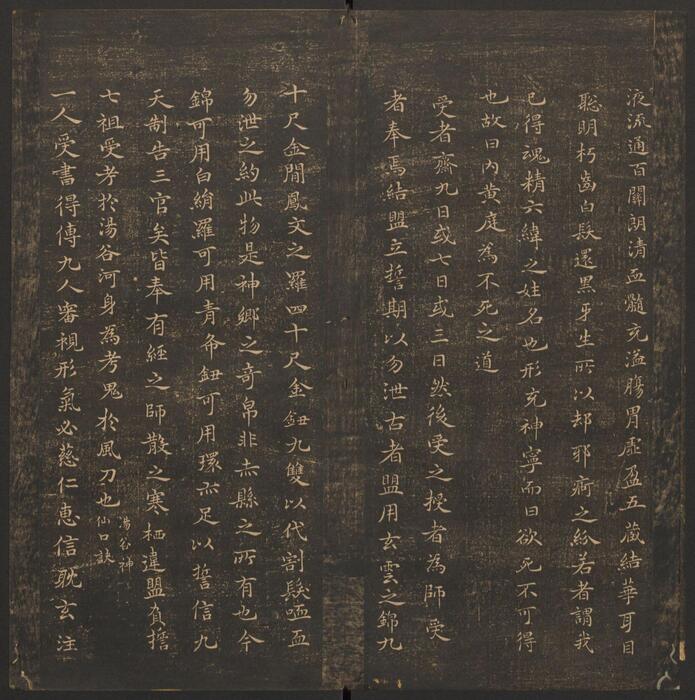 液流通百關朗清血髓充溢腸胃虛盈五藏結華耳目
聡明朽齒白髮還黑牙生所以却邪痾之紛若者謂我
已得魂精六緯之姓名也形充神寧而曰欲死不可得
也故曰內黃庭為不死之道
受者齋九日或七日或三日然後受之授者為師受
者奉焉結盟立誓期以勿泄古者盟用玄雲之錦九
十尺金簡鳳文之羅四十尺金鈕九雙以代割髮歃血
勿泄之約此物是神鄉之奇帛非赤縣之所有也今
錦可用白絹羅可用青布鈕可用環亦足以誓信九
天制告三官矣皆奉有經之師散之寒栖違盟負擔
七祖受考於湯谷河身為考鬼於風刀也湯谷神仙口訣
一人受書得傳九人審視形氣必慈仁惠信耽玄注